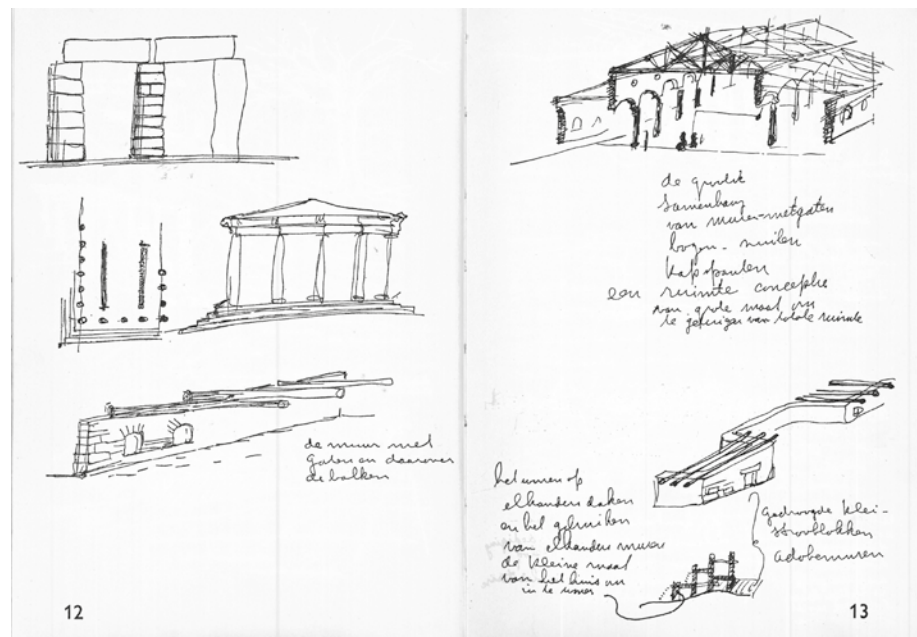 de muur met
gaten en daarover
de balken
12
de grootst
samenhang
van muren-metgaten
bogen - zuilen
kapspanten
een ruimte conceptie
van grote maat om
te getuigen van totale ruimte
het wonen op
elkanders daken
en het gebruiken
van elkanders muren
de kleine maat
van het huis om
in te wonen
gedroogde klei-
strooblokken
adobemuren
13